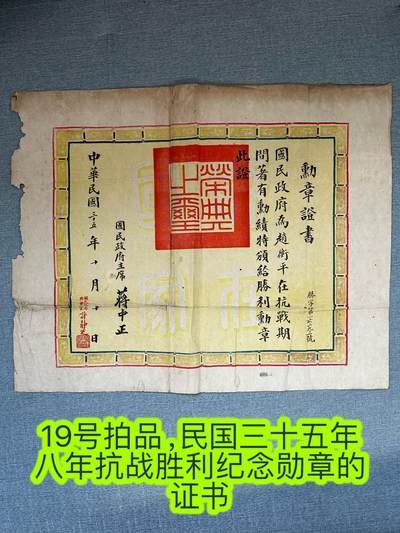 勳章證書
國民政府為趙衡平在抗戰期
間著有勳績特頒給勝利勳章
此證
榮典
之璽
國民政府主席 蔣中正
中華民國三十五年十月十日
19号拍品,民国三十五年
八年抗战胜利纪念勋章的
证书